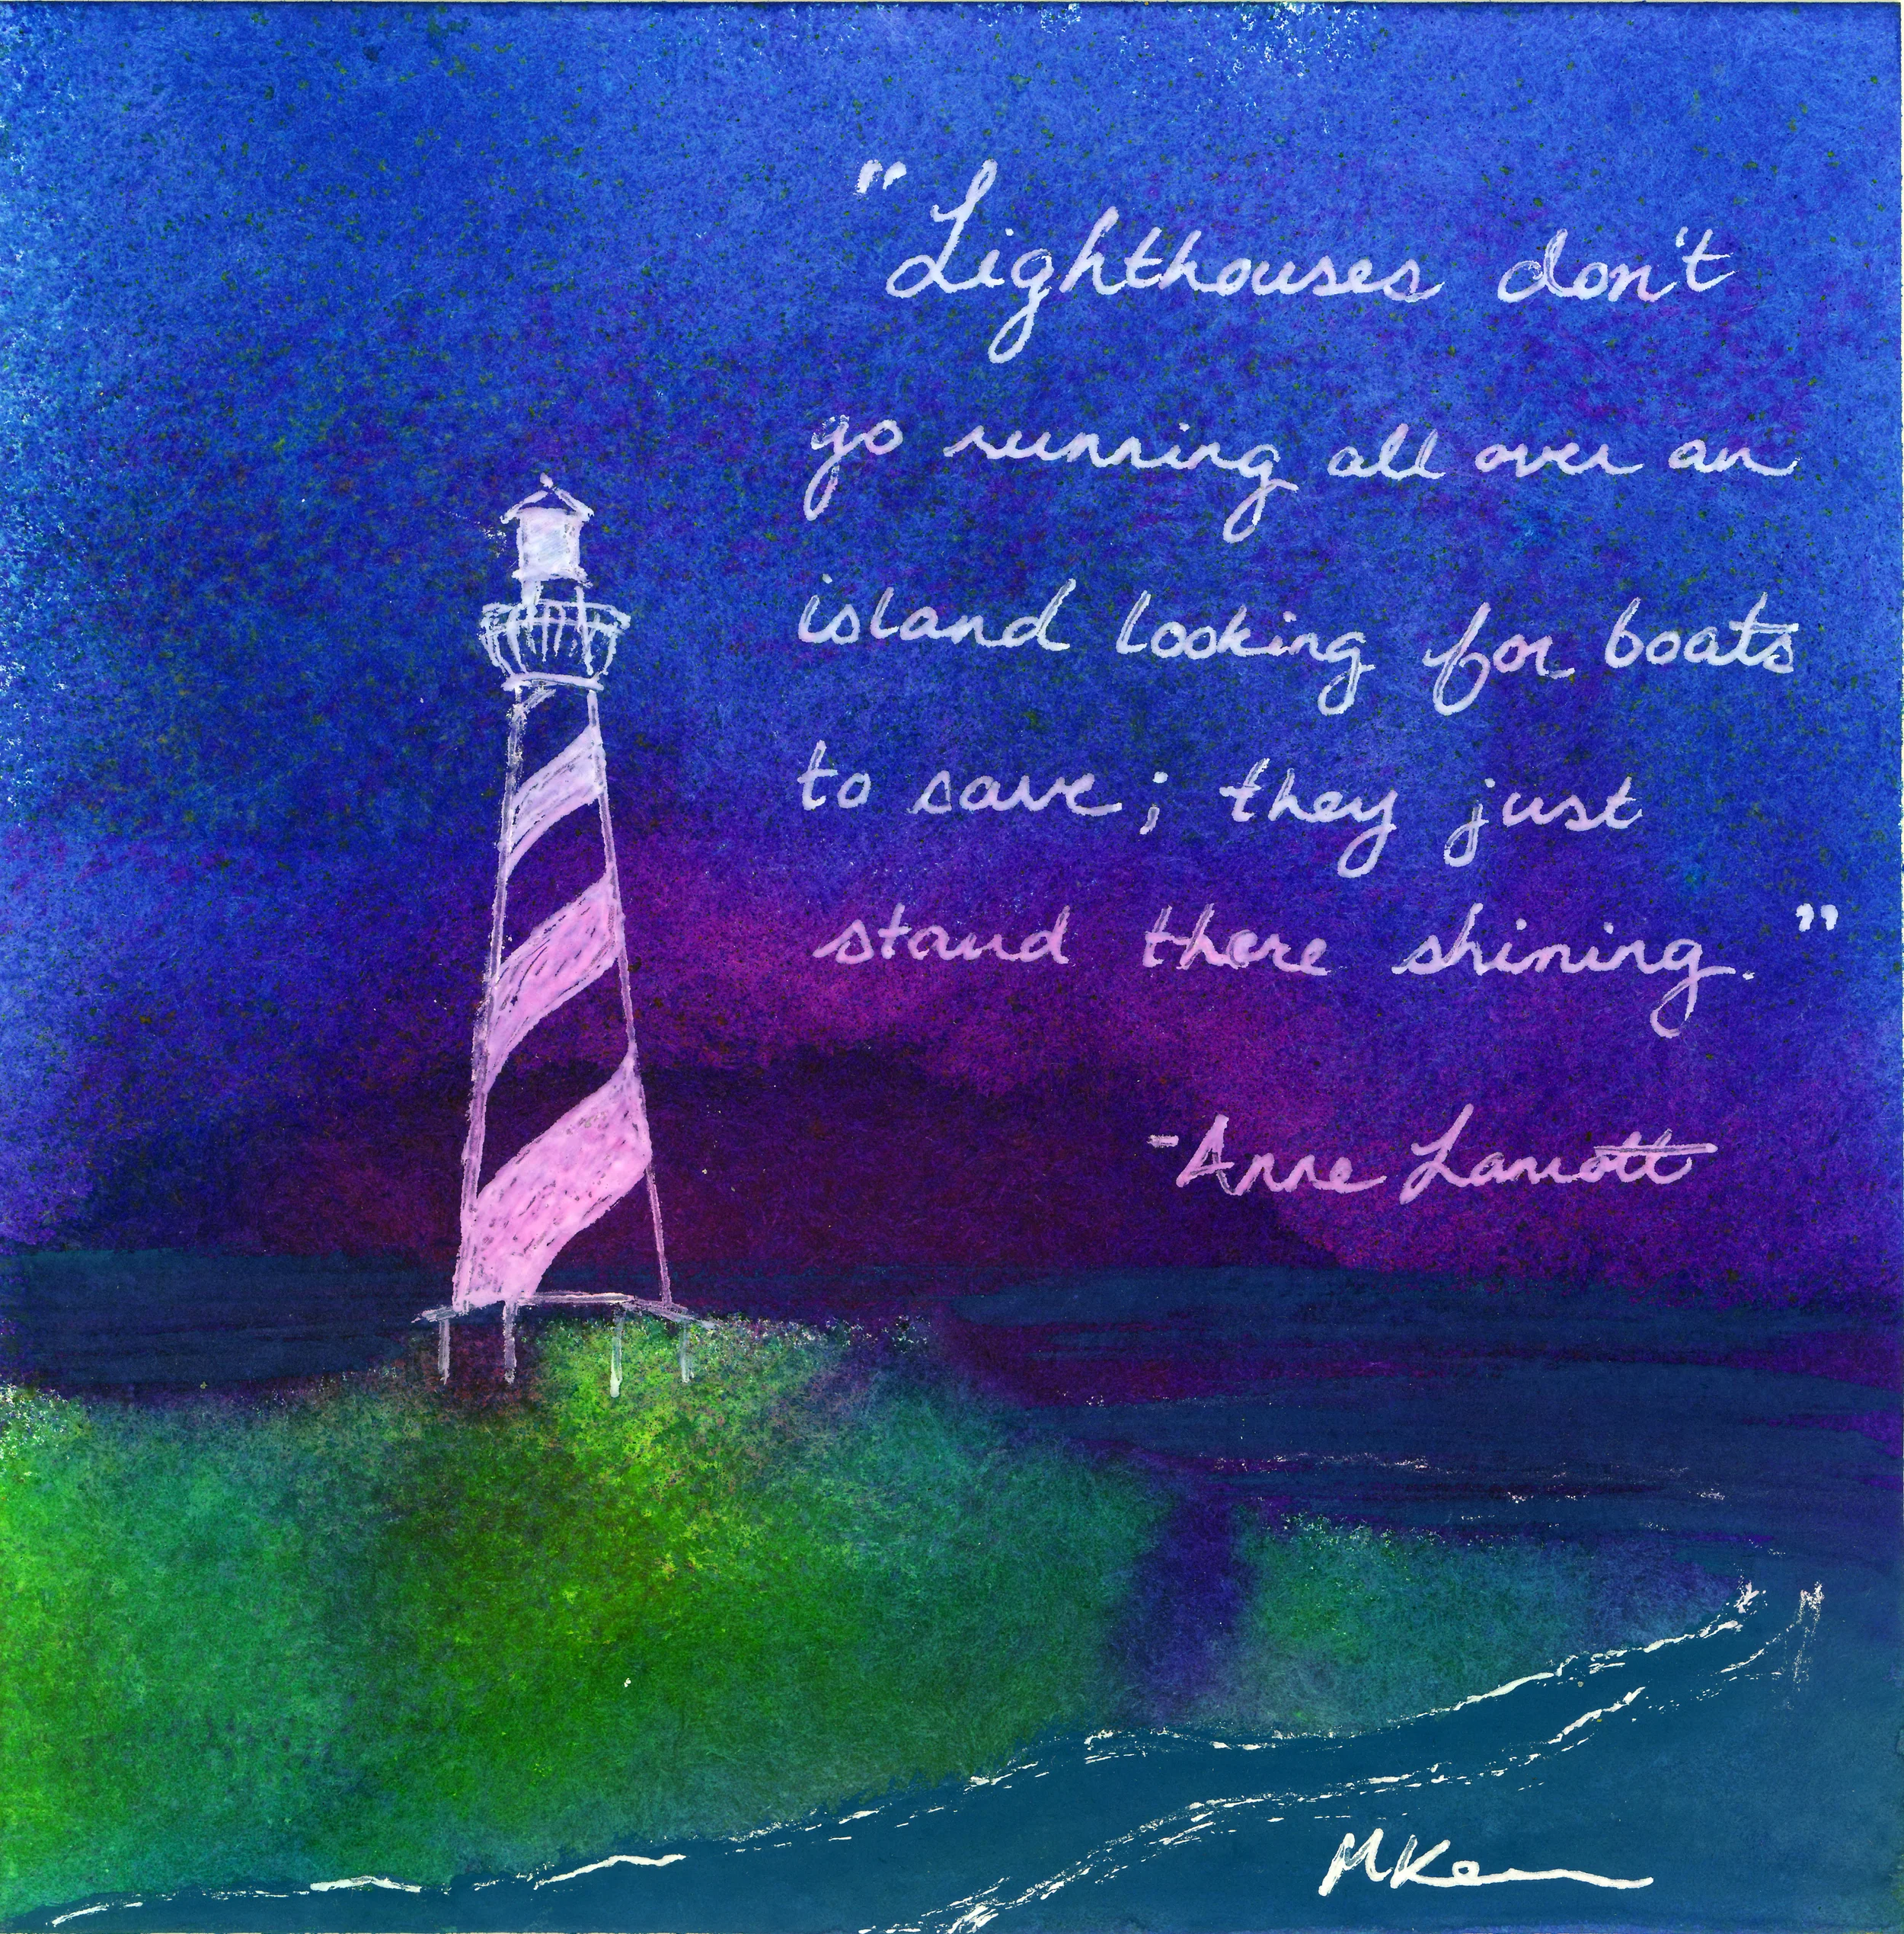 "Lighthouses don't
go running all over an
island looking for boats
to save; they just
stand there shining."
-Anne Lamott